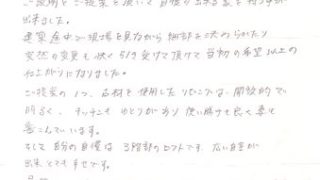 ご説明とご提案を頂いて自慢の出来る家を持つ事が
出来ました。
建築途中で現場を見ながら細部を決められたり
突然の変更も快く引き受けて頂けて当初の希望以上の
仕上がりになりました。
ご提案の1つ、石材を使用したリビングは、開放的で
明るく、キッチンもゆとりがあり使い勝手も良く妻も
喜こんでいます。
そして自分の自慢は3階部のロフトです。広い自室が
出来とても幸せです。